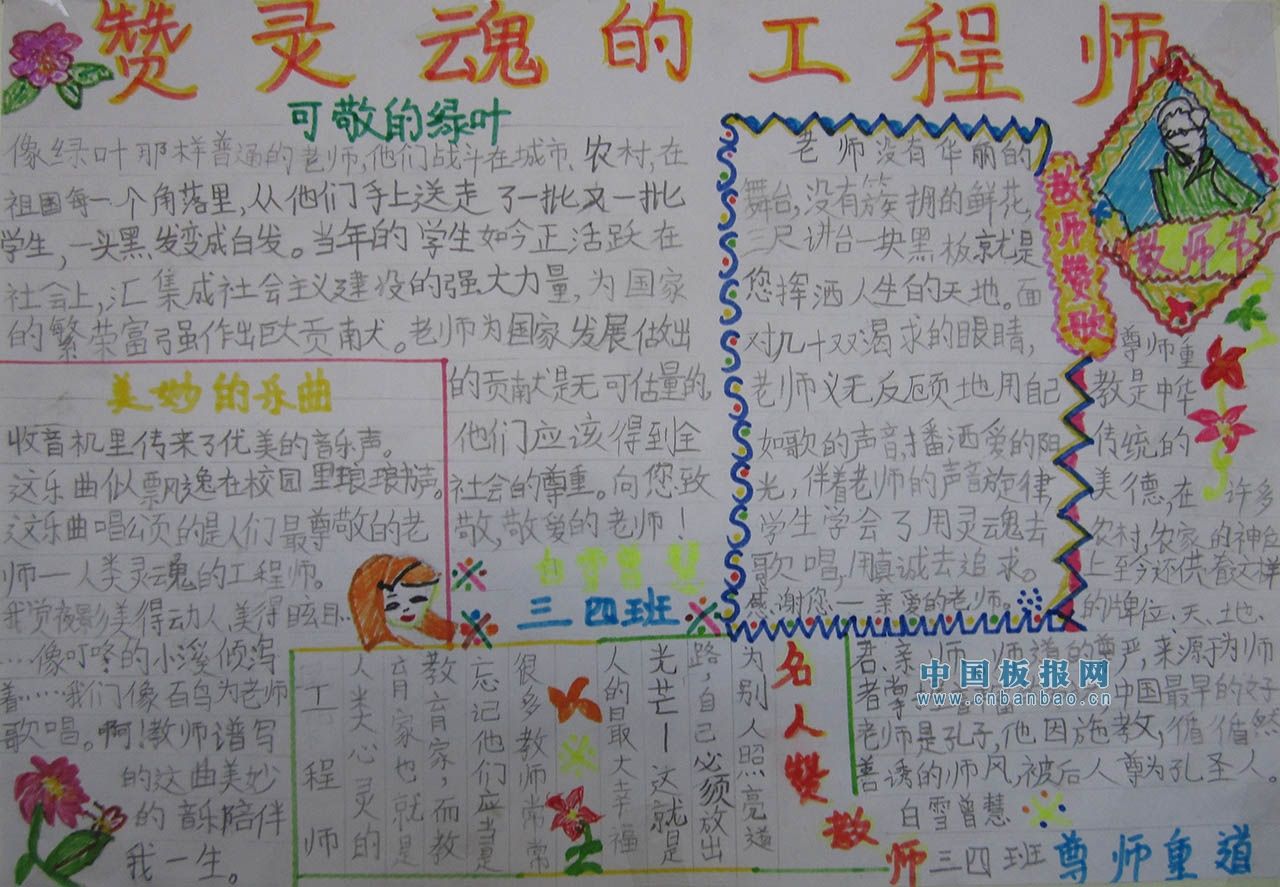 赞灵魂的工程师
可敬的绿叶
像绿叶那样普通的老师,他们战斗在城市、农村,在
祖国每一个角落里,从他们手上送走了一批又一批
学生,一头黑发变成白发。当年的学生如今正活跃在
社会上,汇集成社会主义建设的强大力量,为国家
的繁荣富强作出巨大贡献。老师为国家发展做出
的贡献是无可估量的。
他们应该得到全
社会的尊重。向您致
敬,敬爱的老师!
白雪曾慧
三四班
美妙的乐曲
收音机里传来了优美的音乐声。
这乐曲似飘逸在校园里琅琅书声。
这乐曲唱颂的是人们最尊敬的老
师一人类灵魂的工程师。
我觉夜影美得动人,美得眩目…
……像叮咚的小溪倾泻
着……我们像百鸟为老师
歌唱。啊!教师谱写
的这曲美妙
的音乐陪伴
我一生。
教师赞歌
老师没有华丽的
舞台,没有簇拥的鲜花,
三尺讲台一块黑板就是
您挥洒人生的天地。面
对几十双渴求的眼睛,
老师义无反顾地用自己
如歌的声音,播洒爱的阳
光,伴着老师的声音旋律
学生学会了用灵魂去
歌唱,用真诚去追求。
感谢您一亲爱的老师。
教师节
尊师重
教是中华
传统的
美德,在许多
农村,农家的神台
上至今还供着这样
的牌位:天、地、
君、亲、师。师道的尊严,来源于为师
者
中国最早的好
老师是孔子,他因施教,循循然
善诱的师风,被后人尊为孔圣人。
白雪曾慧
三四班
名人赞
教师
为别人照亮道
路,自己必须放出
光芒—这就是
人的最大幸福
很多教师常常
忘记他们应当是
教育家,而教
育家也就是
人类心灵的
工程师
尊师重道
中国板报网
www.cnbanbao.cn